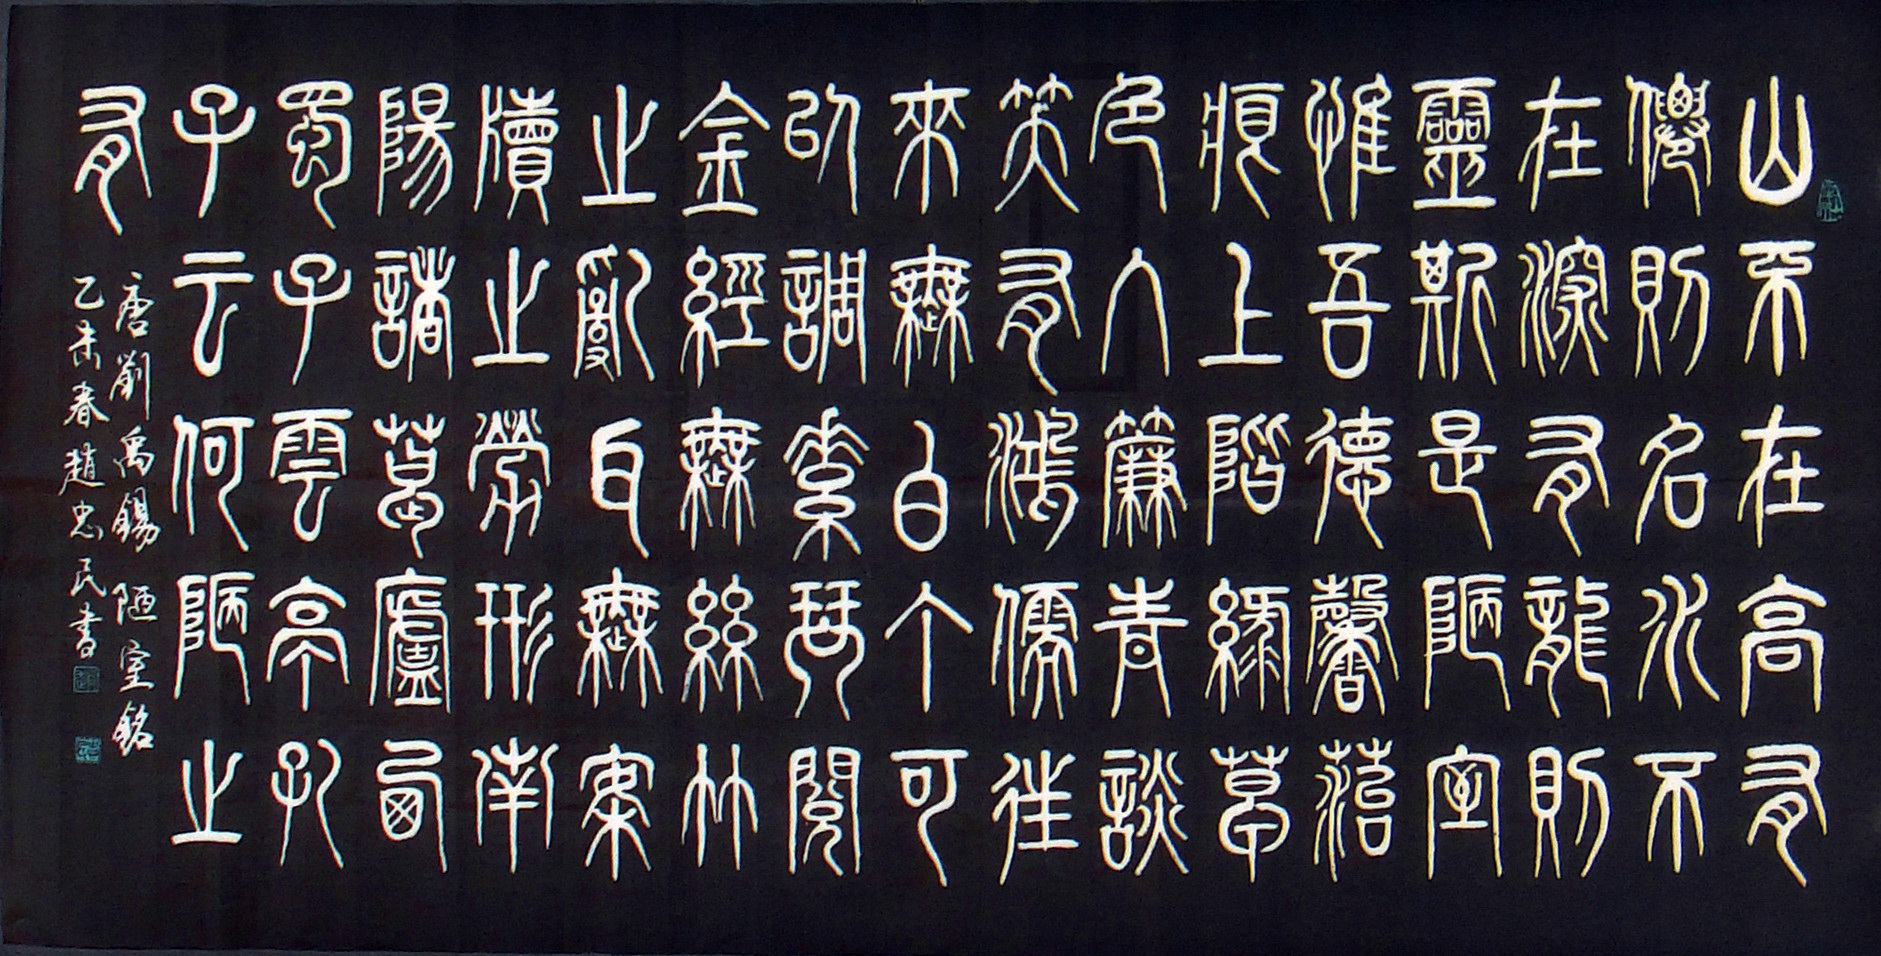 山不在高有
僊則名水不
在深有龍則
靈斯是陋室
惟吾德馨苔
痕上階綠草
色入簾青談
笑有鴻儒往
來無白丁可
以調素琴閱
金經無絲竹
之亂耳無案
牘之勞形南
陽諸葛廬西
蜀子雲亭孔
子云何陋之
有
唐劉禹錫陋室銘
乙未春趙忠民書